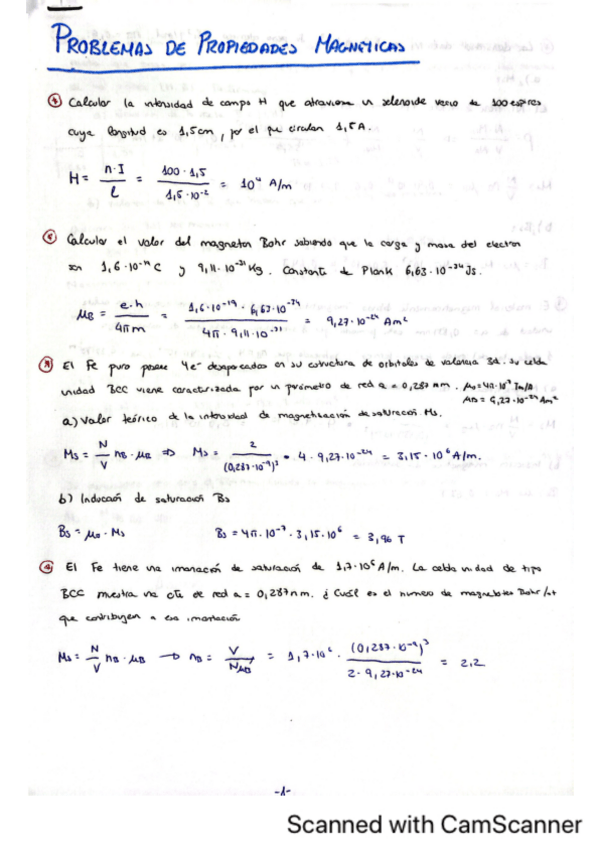 PROBLEMAS DE PROPIEDADES MAGNÉTICAS
① Calcular la intensidad de campo H que atraviesa un solenoide vacio de 100 espiras
cuya longitud es 1,5cm, por el que circulan 1,5A.
H = n·I / l = 100·1,5 / 1,5·10⁻² = 10⁴ A/m
Calcular el valor del magneton Bohr sabiendo que la carga y masa del electron
son 1,6·10⁻¹⁹ C y 9,11·10⁻³¹ Kg. Constante de Plank 6,63·10⁻³⁴ Js.
μB = e·h / 4πm = 1,6·10⁻¹⁹ · 6,63·10⁻³⁴ / 4π · 9,11·10⁻³¹ = 9,27·10⁻²⁴ Am²
③ El Fe puro posee 4e⁻ desapareados en su estructura de orbitales de valencia 3d. su celda
unidad BCC viene caracterizada por un parámetro de red a = 0,287 nm. μ₀=4π·10⁻⁷ Tm/A
μB = 9,27·10⁻²⁴ Am²
a) Valor teórico de la intensidad de magnetización de saturación Ms.
Ms = N/V nB·μB ⇒ Ms = 2 / (0,287·10⁻⁹)³ · 4 · 9,27·10⁻²⁴ = 3,15·10⁶ A/m.
b) Inducción de saturación Bs
Bs = μ₀·Ms Bs = 4π·10⁻⁷ · 3,15·10⁶ = 3,96 T
④ El Fe tiene una imanación de saturación de 1,7·10⁶ A/m. La celda unidad de tipo
BCC muestra una cte de red a = 0,287nm. ¿Cuál es el numero de magnetones Bohr/at
que contribuyen a esa imantación
Ms = N/V nB·μB → nB = V / N μB = 1,7·10⁶ · (0,287·10⁻⁹)³ / 2·9,27·10⁻²⁴ = 2,2
-1-
Scanned with CamScanner